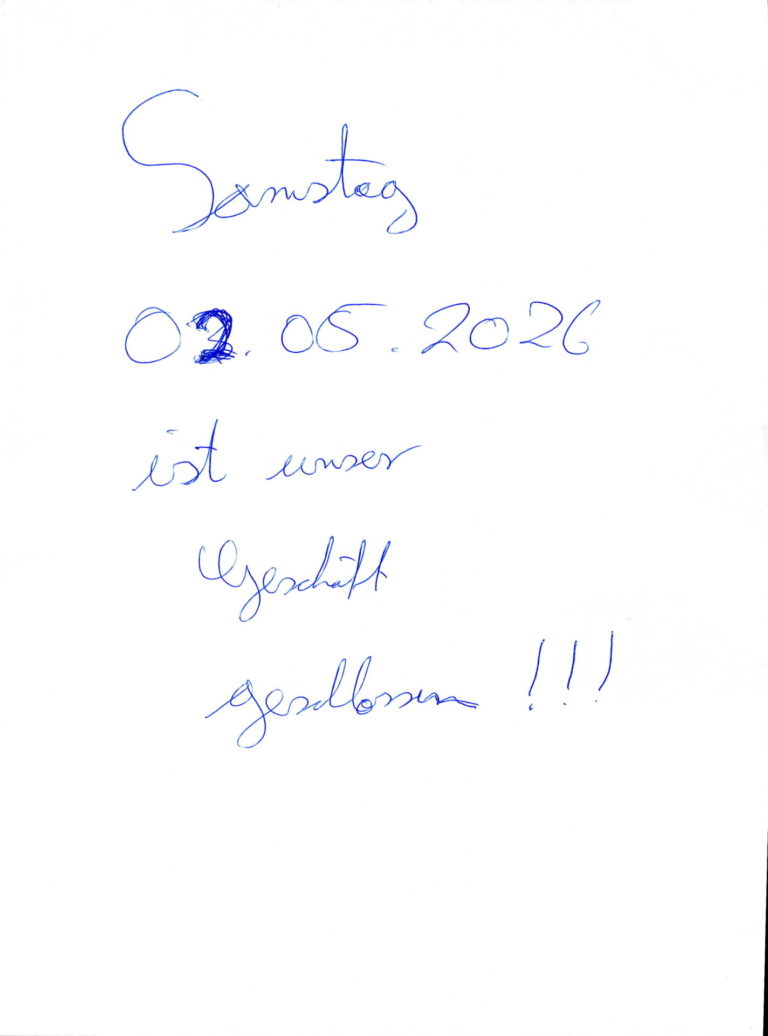 Samstag
02.05.2026
ist unser
Geschäft
geschlossen !!!